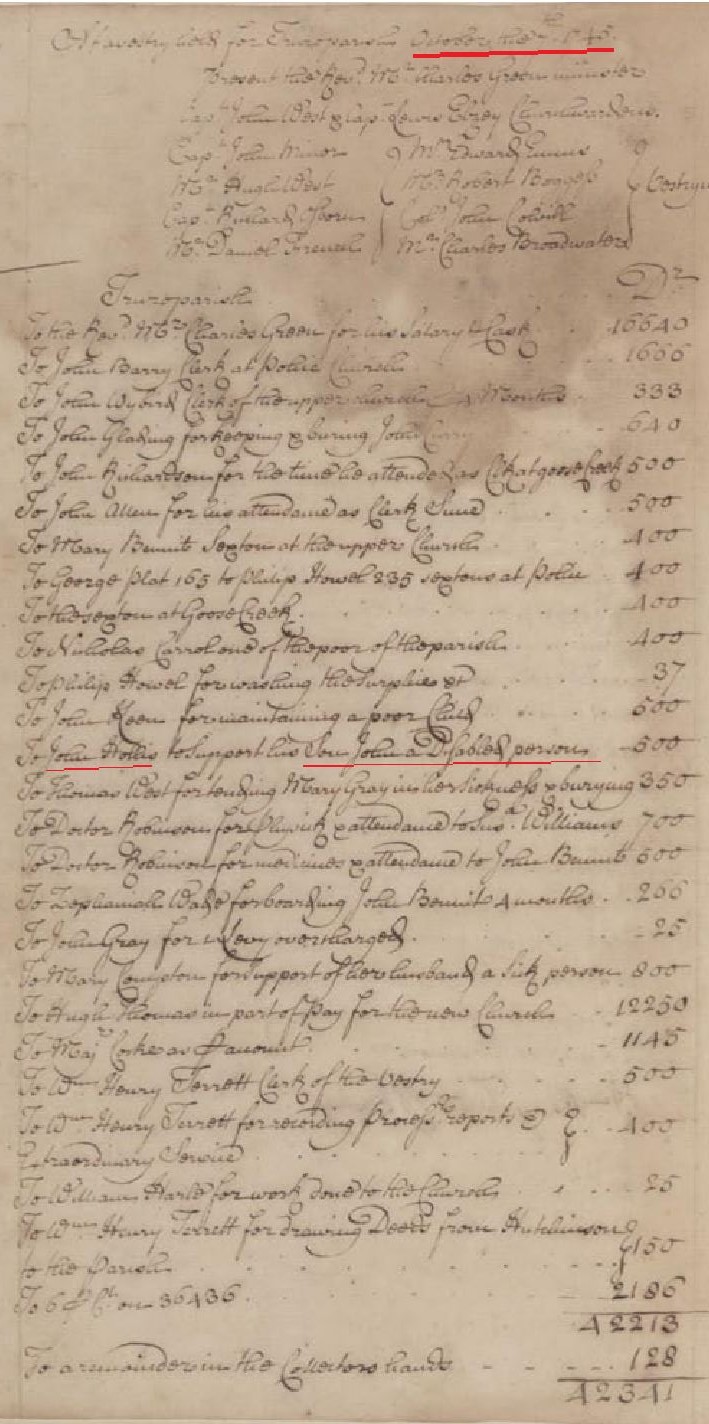 At a vestry held for Truro parish October the 1745.
Present the Revd. Mr. Charles Green minister
Capt. John West & Capt. Lewis Elzey Churchwardens.
Capt. John Minor Mr. Edward Emms
Mr. Hugh West Mr. Robert Boggess
Capt. Richard Osborn Coll. John Colvill Vestrym
Mr. Daniel French Mr. Charles Broadwater
Truro parish Dr.
To the Revd. Mr. Charles Green for his Salary & Cask 16640
To John Barry Clerk at Pohic Church 1666
To John Wybird Clerk of the upper church Months 333
To John Glading for keeping & buring John Curry 640
To John Richardson for the time he attended as Clk at goose Creek 500
To John Allen for his attendance as Clerk 500
To Mary Bennit Sexton at the upper Church 400
To George Plat 165 to Philip Howel 235 sextons at Pohic 400
To the sexton at Goose Creek 400
To Nicholas Carrol one of the poor of the parish 400
To Philip Howel for washing the Surplice &c 37
To John Keen for maintaining a poor Child 500
To John Hollis to Support his Son John a Disabled person 500
To Thomas West for tending Mary Gray in her Sickness & burying 350
To Doctor Robinson for Physick & attendance to Susa. Williams 700
To Doctor Robinson for medicines & attendance to John Bennit 500
To Zephaniah Wade for boarding John Bennit 4 months 266
To John Gray for a Levy overcharged 25
To Mary Compton for Support of her husband a Sick person 800
To Hugh Thomas in part of Pay for the new Church 12250
To Majr. Cocke as P account 1145
To Wm. Henry Terrett Clerk of the Vestry 500
To Wm. Henry Terrett for recording Process. Reports & 400
Extraordinary Service
To William Harle for work done to the Church 25
To Wm. Henry Terrett for drawing Deeds from Hutchinson 150
to the Parish
To 6 P Ct. on 36436 2186
42213
To a remainder in the Collectors hands 128
42341